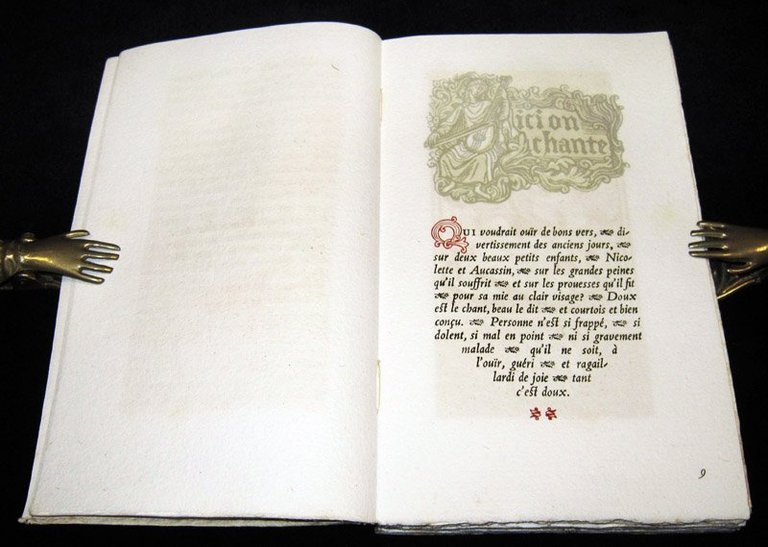 ici on
chante
QUI voudrait ouïr de bons vers, di-
vertissement des anciens jours,
sur deux beaux petits enfants, Nico-
lette et Aucassin, sur les grandes peines
qu'il souffrit et sur les prouesses qu'il fit
pour sa mie au clair visage? Doux
est le chant, beau le dit et courtois et bien
conçu. Personne n'est si frappé, si
dolent, si mal en point ni si gravement
malade qu'il ne soit, à
l'ouïr, guéri et ragail-
lardi de joie tant
c'est doux.
9